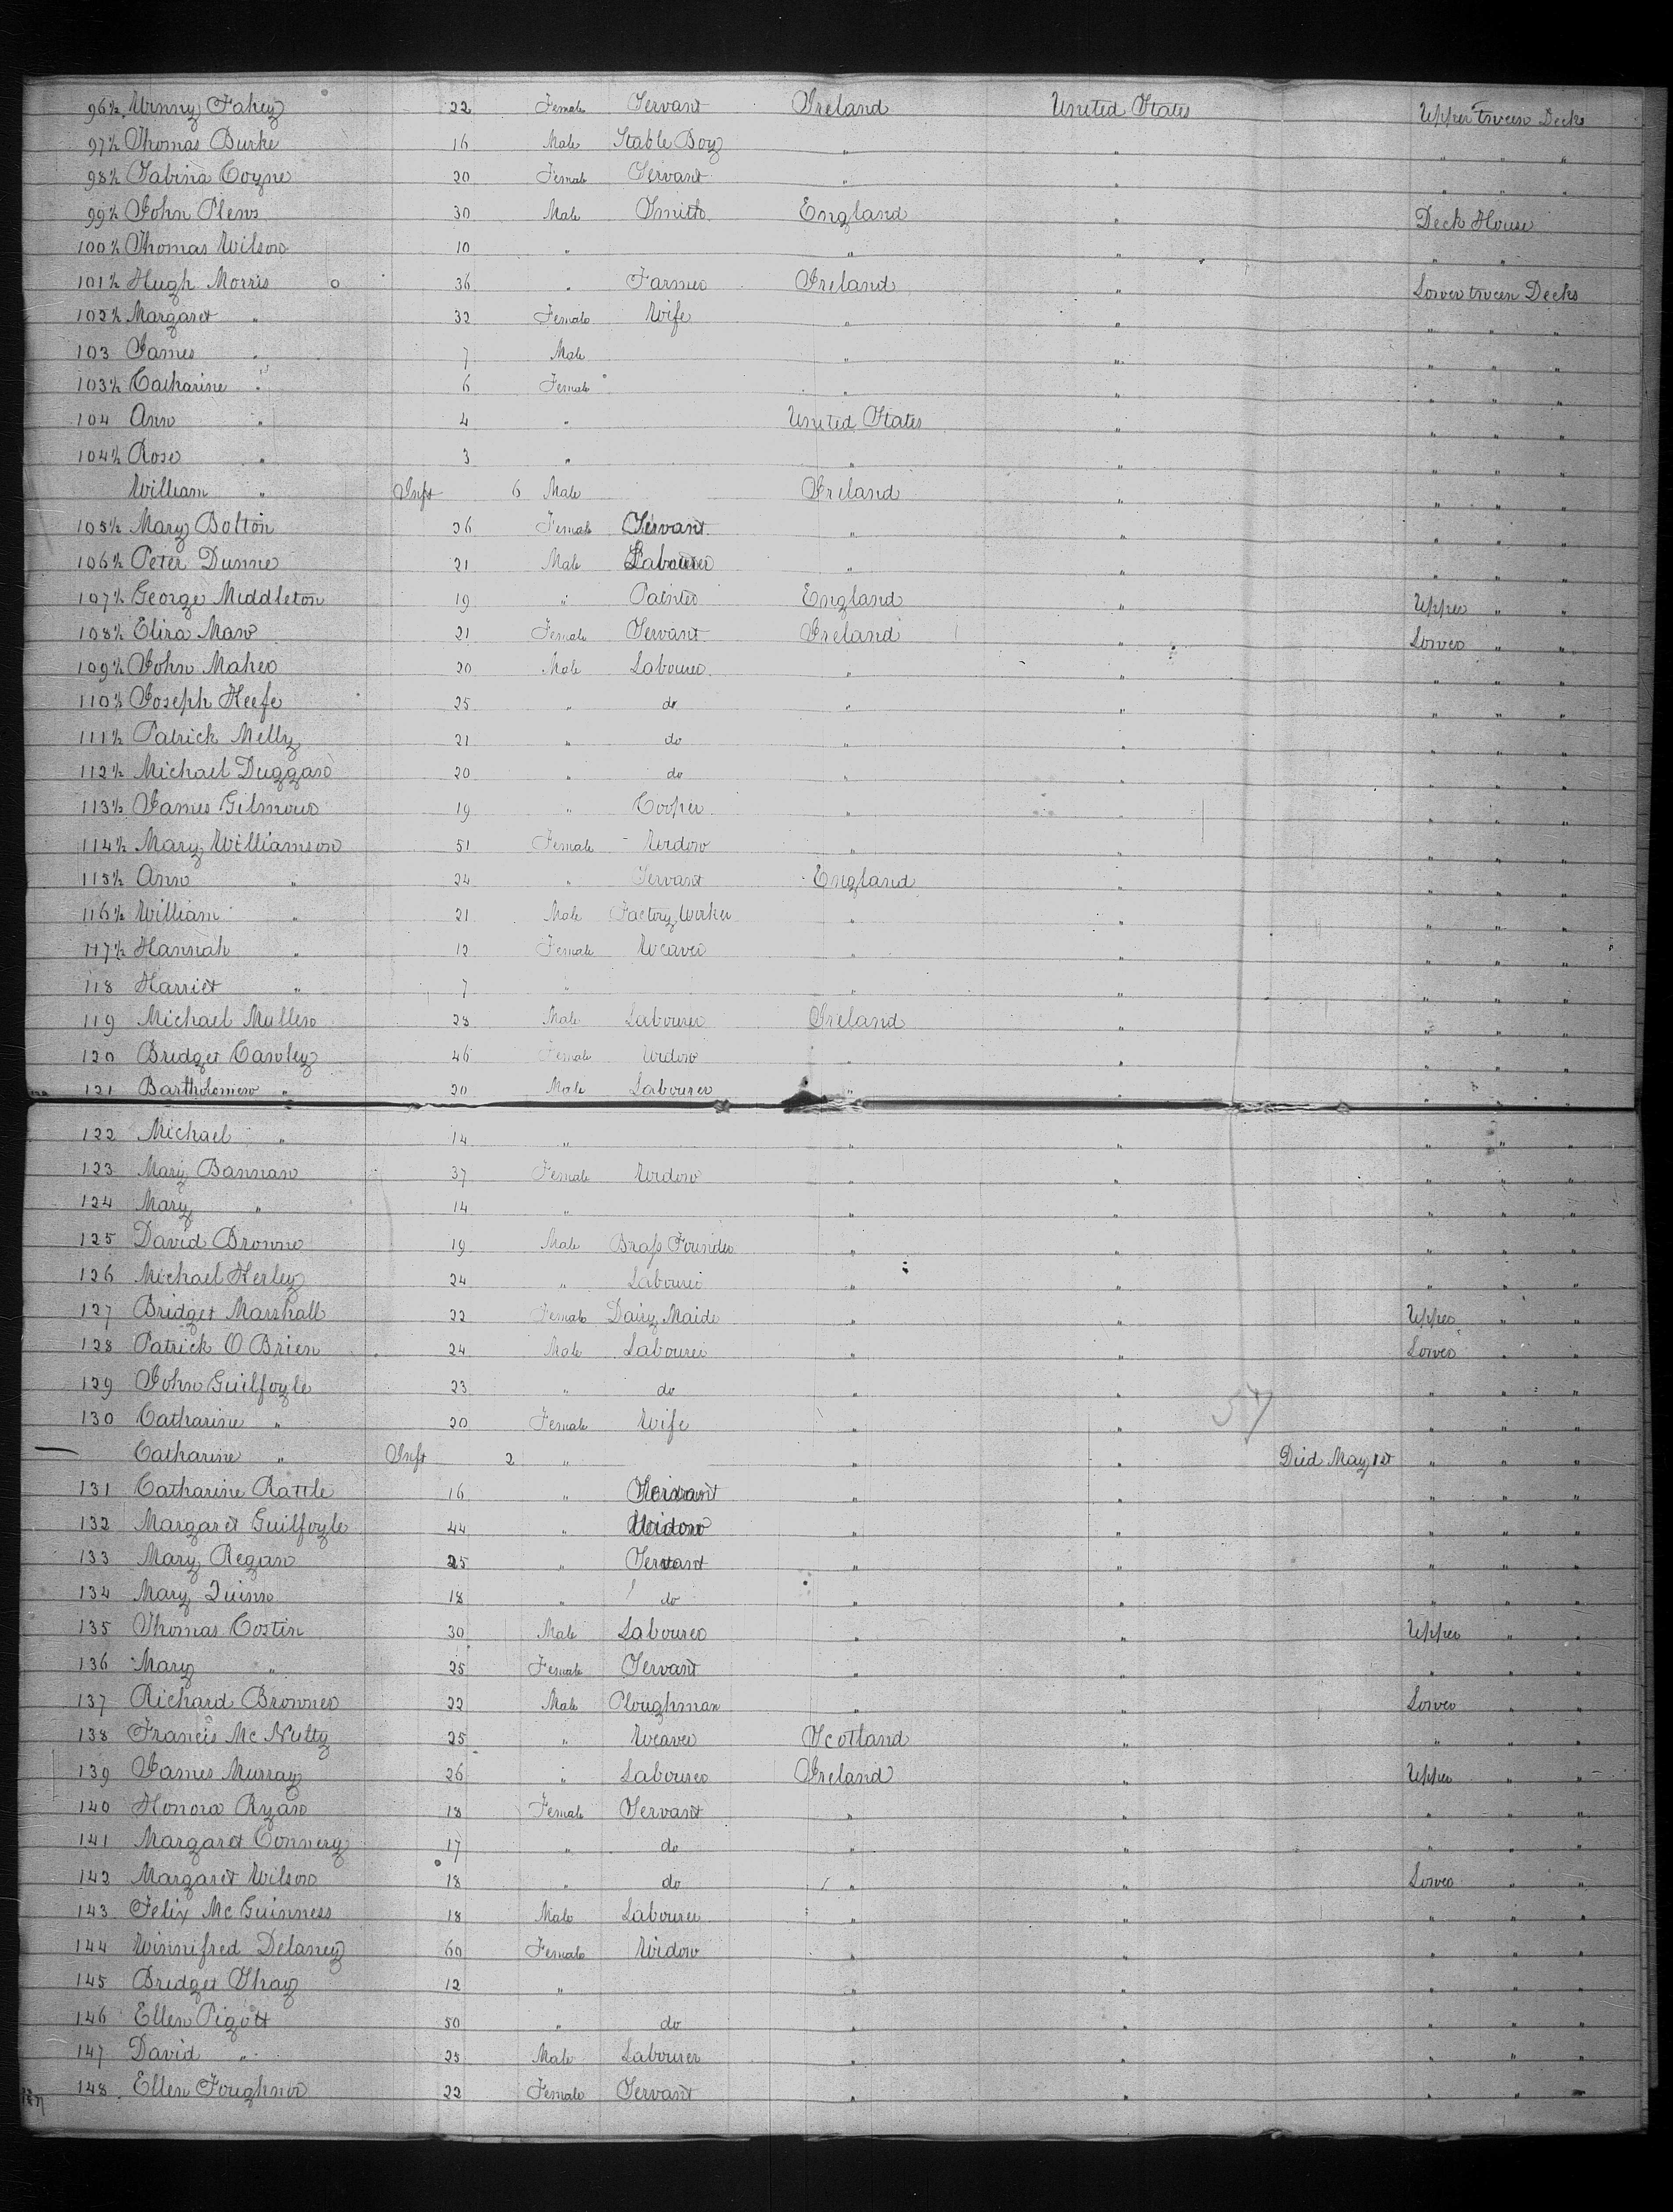 96½ Winny Fahey 22 Female Servant Ireland United States Upper tween Decks
97½ Thomas Burke 16 Male Stable Boy " " " " "
98½ Sabina Coyne 20 Female Servant " " " " "
99½ John Plews 30 Male Smith England " Deck House
100½ Thomas Wilson 10 " " " " "
101½ Hugh Morris 36 " Farmer Ireland " Lower tween Decks
102½ Margaret " 32 Female Wife " " " " "
103 James " 7 Male " " " " "
103½ Catharine " 6 Female " " " " "
104 Ann " 4 " United States " " " "
104½ Rose " 3 " " " " " "
William " Inft 6 Male Ireland " " " "
105½ Mary Bolton 26 Female Servant " " " " "
106½ Peter Dunne 21 Male Labourer " " " " "
107½ George Middleton 19 " Painter England " Upper " "
108½ Eliza Maw 21 Female Servant Ireland " Lower " "
109½ John Maher 20 Male Labourer " " " " "
110½ Joseph Keefe 25 " do " " " " "
111½ Patrick Melly 21 " do " " " " "
112½ Michael Duggan 20 " do " " " " "
113½ James Gilmour 19 " Cooper " " " " "
114½ Mary Williamson 51 Female Widow " " " " "
115½ Ann " 24 " Servant England " " " "
116½ William " 21 Male Factory Worker " " " " "
117½ Hannah " 12 Female Weaver " " " " "
118 Harriet " 7 " " " " " "
119 Michael Mullen 28 Male Labourer Ireland " " " "
120 Bridget Cawley 46 Female Widow " " " " "
121 Bartholomew " 20 Male Labourer " " " " "
122 Michael " 14 " " " " " "
123 Mary Bannan 37 Female Widow " " " " "
124 Mary " 14 " " " " " "
125 David Browne 19 Male Brass Founder " " " " "
126 Michael Herley 24 " Labourer " " " " "
127 Bridget Marshall 22 Female Dairy Maide " " Upper " "
128 Patrick O Brien 24 Male Labourer " " Lower " "
129 John Guilfoyle 23 " do " " " " "
130 Catharine " 20 Female Wife " " 57 " " "
Catharine " Inft 2 " " " Died May 1st " " "
131 Catharine Rattle 16 " Servant " " " " "
132 Margaret Guilfoyle 44 " Widow " " " " "
133 Mary Regan 25 " Servant " " " " "
134 Mary Quinn 18 " do " " " " "
135 Thomas Costin 30 Male Labourer " " Upper " "
136 Mary " 25 Female Servant " " " " "
137 Richard Browner 22 Male Ploughman " " Lower " "
138 Francis Mc Nulty 25 " Weaver Scotland " " " "
139 James Murray 26 " Labourer Ireland " Upper " "
140 Honora Ryan 18 Female Servant " " " " "
141 Margaret Connery 17 " do " " " " "
142 Margaret Wilson 18 " do " " Lower " "
143 Felix Mc Guinness 18 Male Labourer " " " " "
144 Winnifred Delaney 60 Female Widow " " " " "
145 Bridget Shay 12 " " " " " "
146 Ellen Pigott 50 " do " " " " "
147 David " 25 Male Labourer " " " " "
148 Ellen Foughner 22 Female Servant " " " "